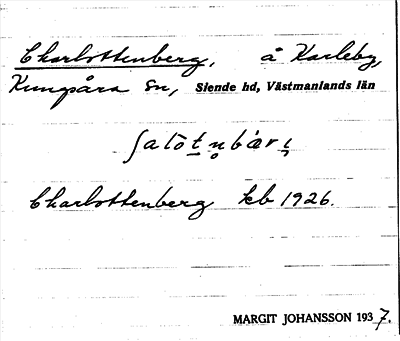 Charlottenberg, å Karleby,
Kungsåra sn, Siende hd, Västmanlands län
Charlottenberg kb 1926.
MARGIT JOHANSSON 1937.